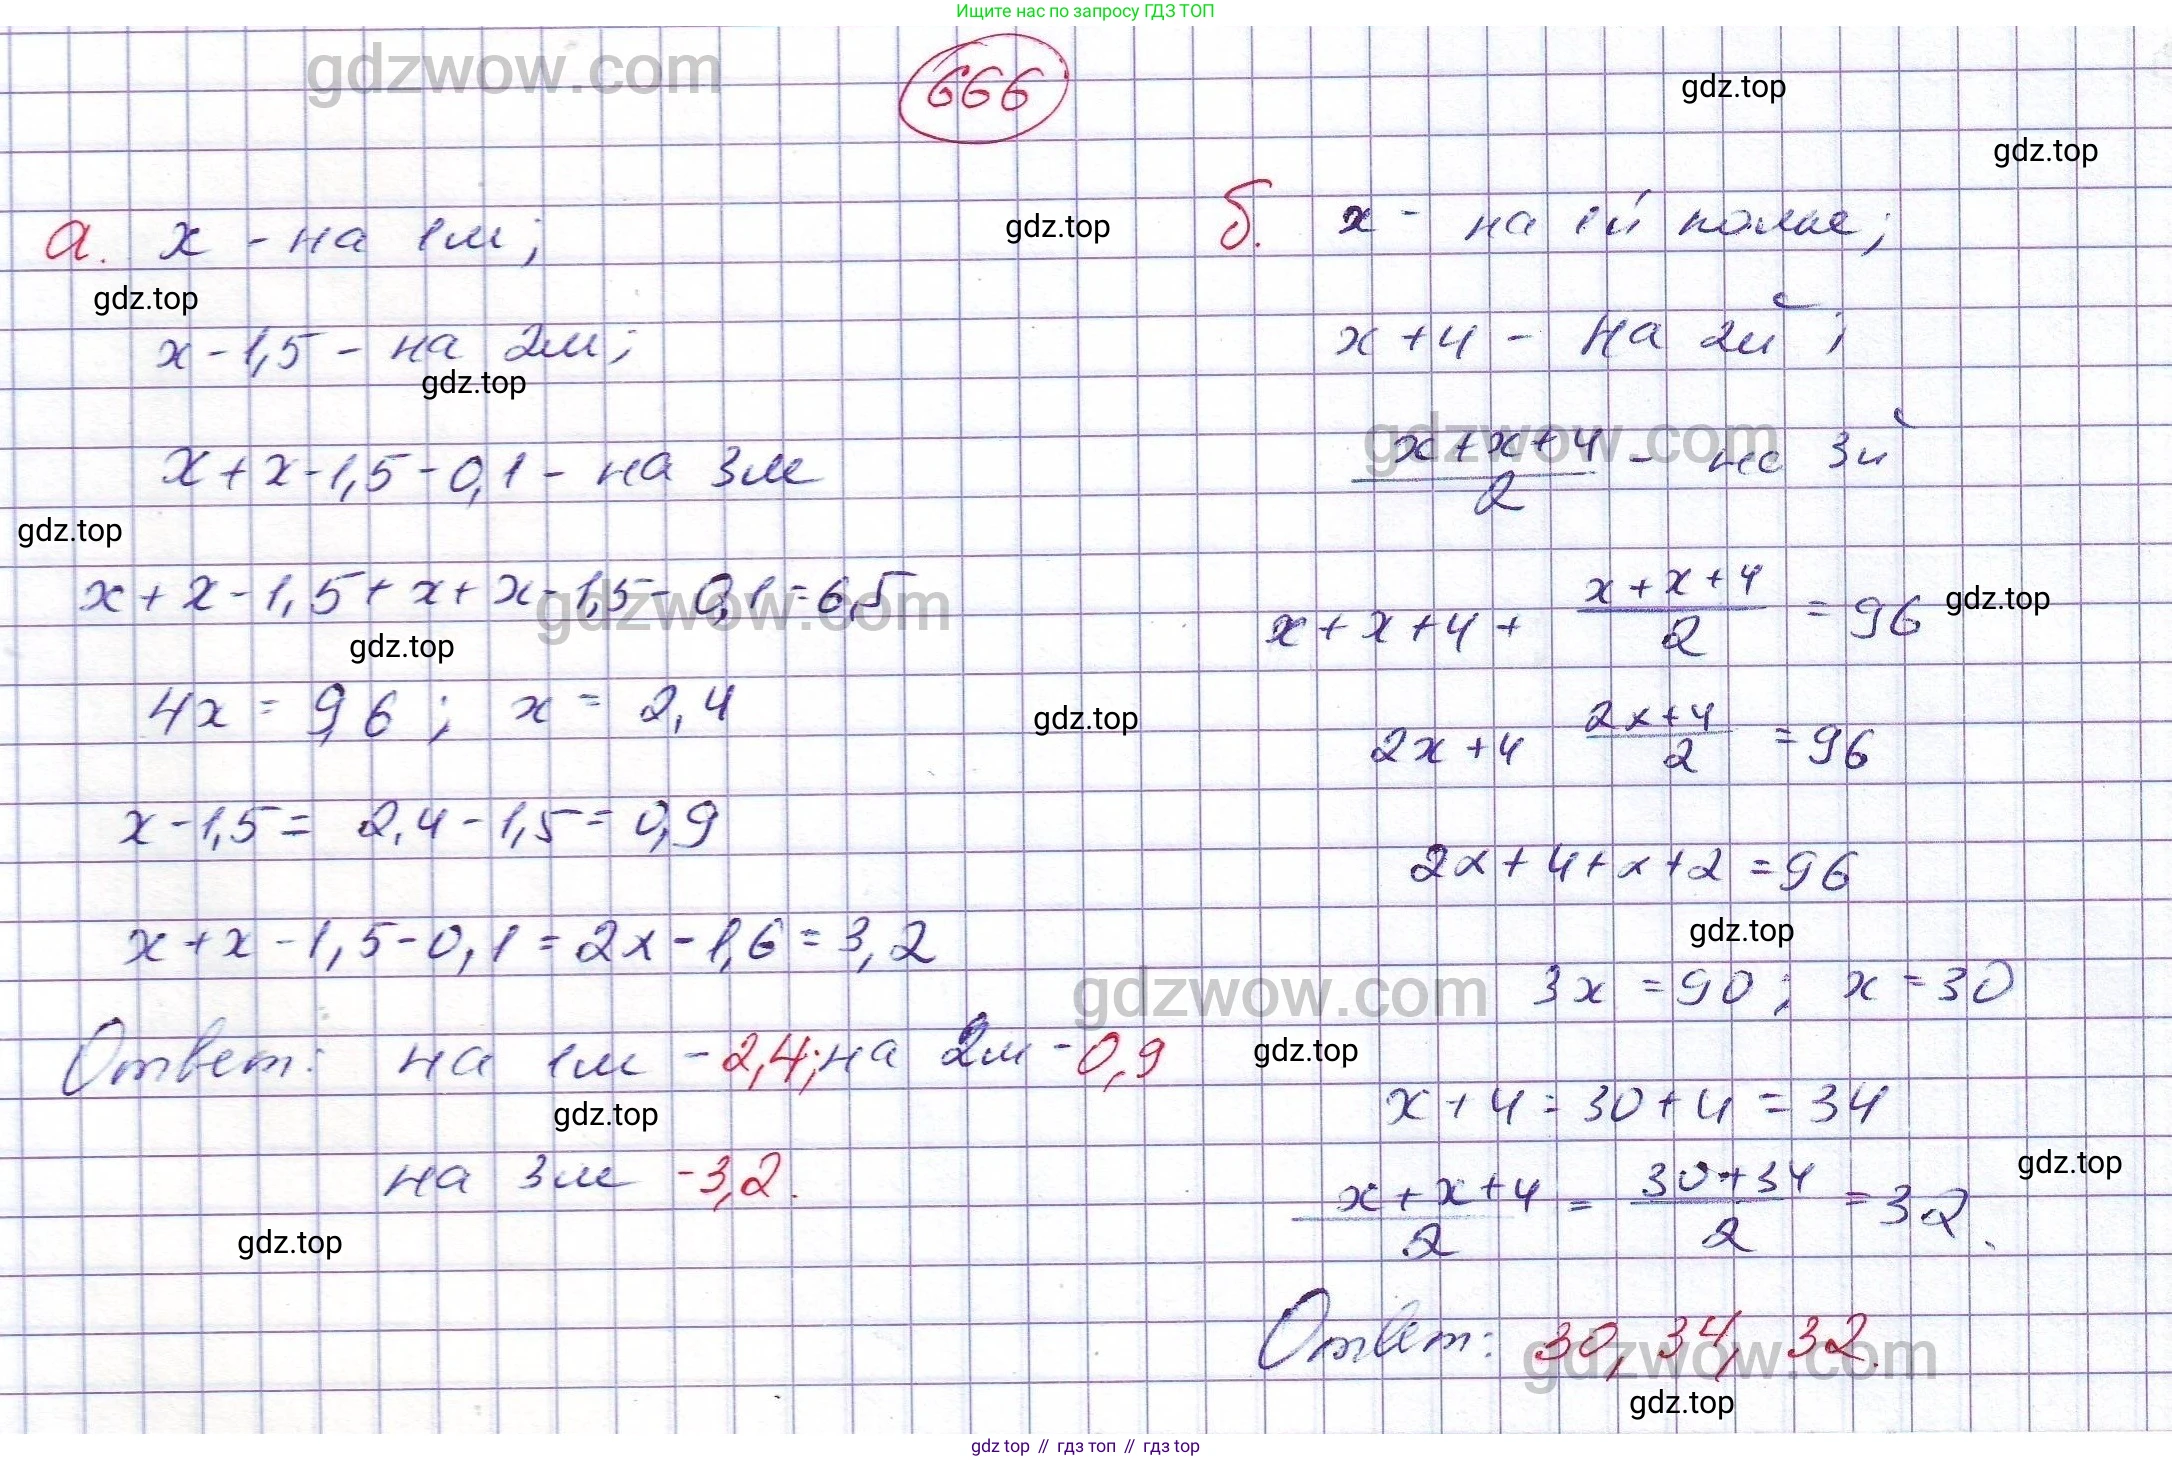 Ищите нас по запросу ГДЗ ТОП
gdzwow.com
666
gdz.top
gdz.top
а. x - на 1м;
gdz.top
x - 1,5 - на 2м;
gdz.top
x + x - 1,5 - 0,1 - на 3м
gdz.top
x + x - 1,5 + x + x - 1,5 - 0,1 = 6,5
gdzwow.com
gdz.top
4x = 9,6 ; x = 2,4
x - 1,5 = 2,4 - 1,5 = 0,9
x + x - 1,5 - 0,1 = 2x - 1,6 = 3,2
Ответ: на 1м - 2,4; на 2м - 0,9
gdz.top
на 3м - 3,2.
gdz.top
gdz.top
б. x - на 1й полке;
x + 4 - на 2й ;
gdzwow.com
(x + x + 4)/2 - на 3й
x + x + 4 + (x + x + 4)/2 = 96
gdz.top
gdz.top
2x + 4 (2x + 4)/2 = 96
2x + 4 + x + 2 = 96
gdz.top
gdzwow.com
3x = 90 ; x = 30
gdz.top
x + 4 = 30 + 4 = 34
gdz.top
(x + x + 4)/2 = (30 + 34)/2 = 32.
Ответ: 30, 34, 32.
gdzwow.com
gdz.top
gdz top // гдз топ // гдз top